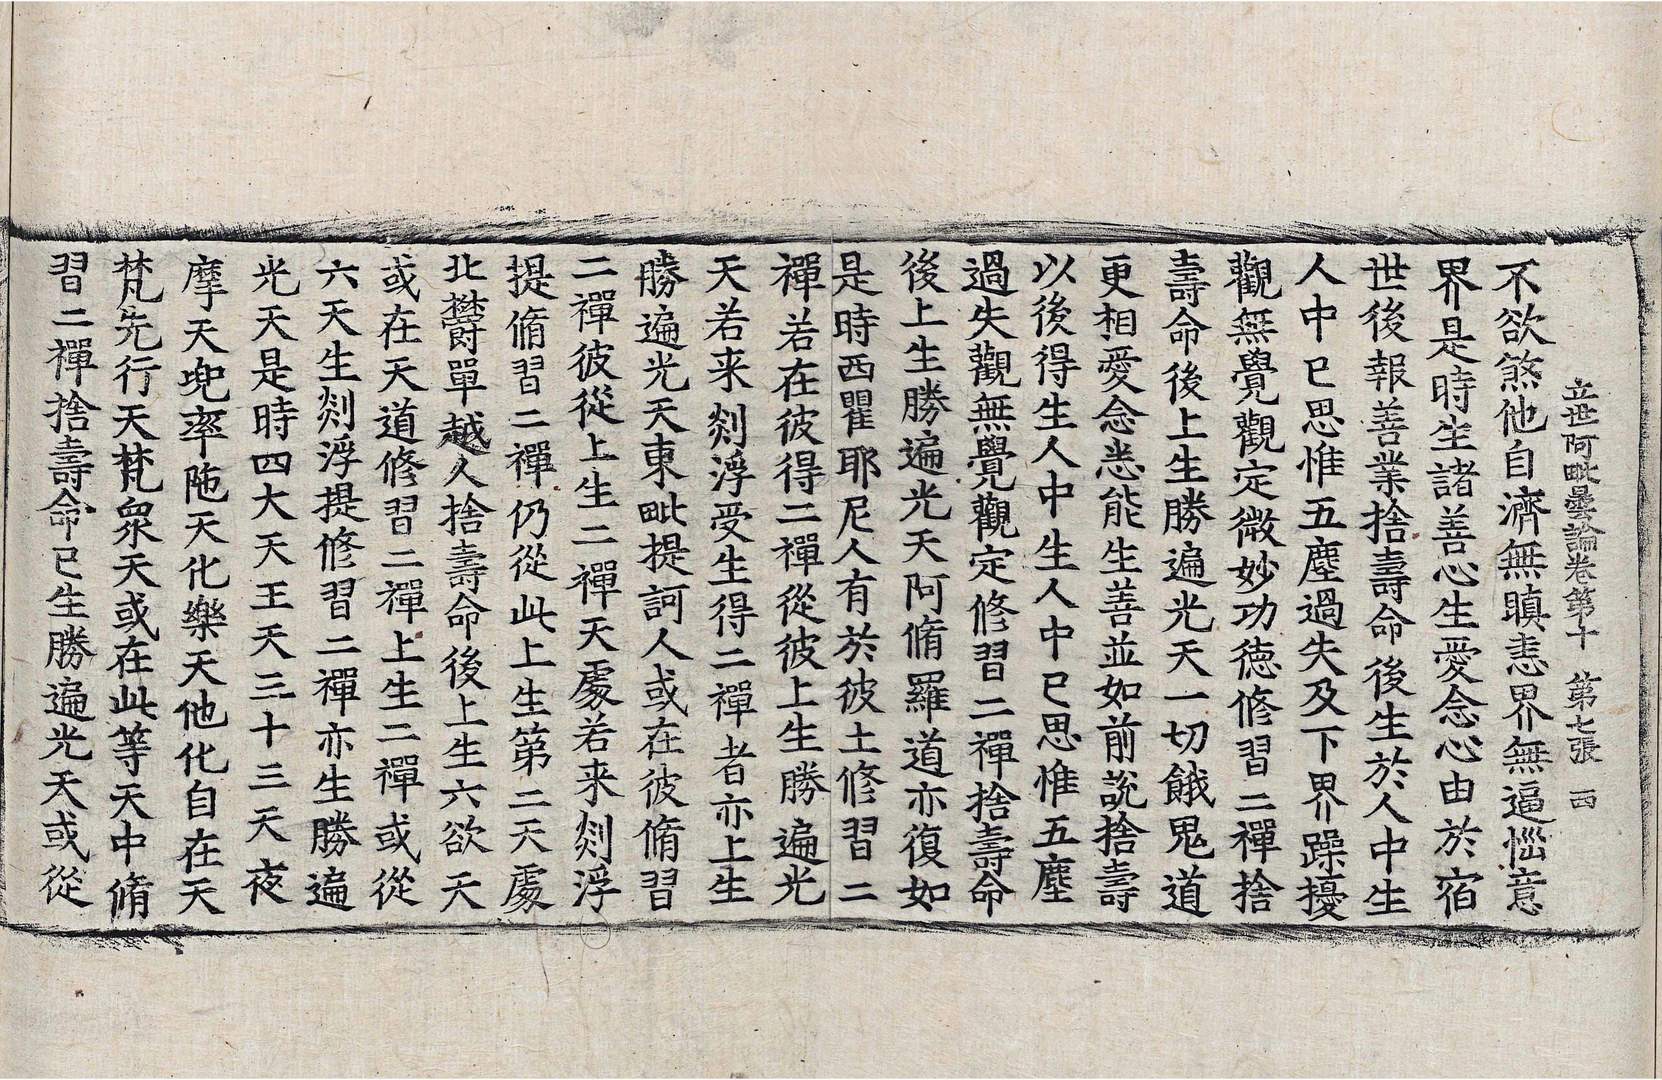 立世阿毗曇論卷第十　第七張　西
不欲煞他自濟無瞋恚界無逼惱意
界是時生諸善心生愛念心由於宿
世後報善業捨壽命後生於人中生
人中已思惟五塵過失及下界躁擾
觀無覺觀定微妙功德修習二禪捨
壽命後上生勝遍光天一切餓鬼道
更相愛念悉能生善並如前說捨壽
以後得生人中生人中已思惟五塵
過失觀無覺觀定修習二禪捨壽命
後上生勝遍光天阿脩羅道亦復如
是時西瞿耶尼人有於彼土修習二
禪若在彼得二禪從彼上生勝遍光
天若来剡浮受生得二禪者亦上生
勝遍光天東毗提訶人或在彼脩習
二禪彼從上生二禪天處若来剡浮
提脩習二禪仍從此上生第二天處
北欝單越久捨壽命後上生六欲天
或在天道修習二禪上生二禪或從
六天生剡浮提修習二禪亦生勝遍
光天是時四大天王天三十三天夜
摩天兜率陁天化樂天他化自在天
梵先行天梵衆天或在此等天中脩
習二禪捨壽命已生勝遍光天或從